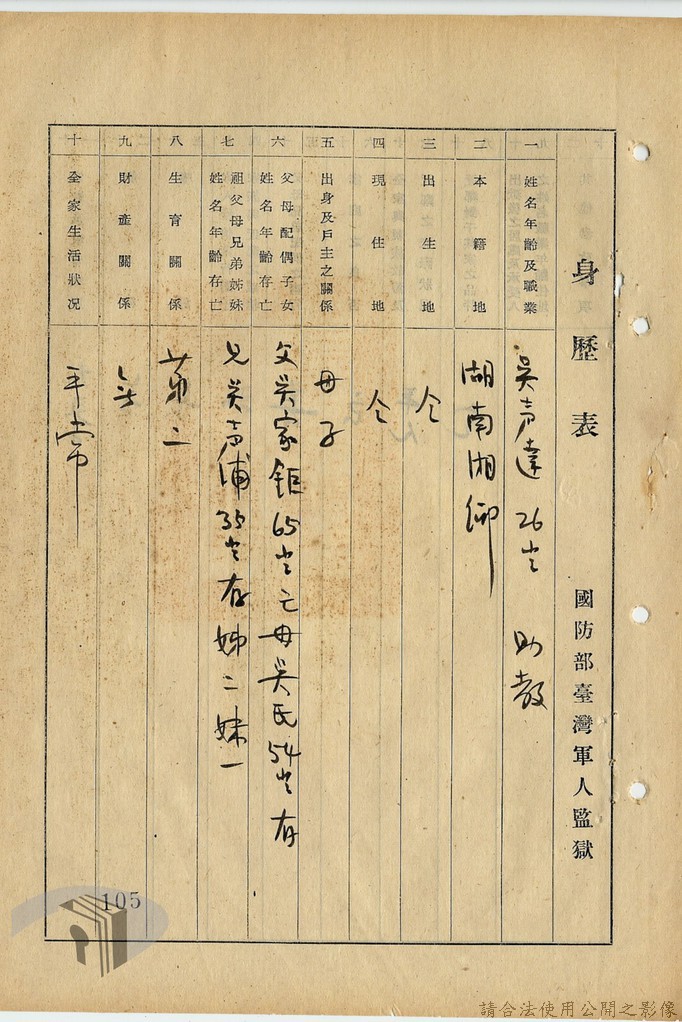 身歷表
國防部臺灣軍人監獄
一
姓名年齡及職業
吳声達 26才 助教
二
本籍地
湖南湘鄉
三
出生地
仝
四
現住地
仝
五
出身及戶主之關係
母子
六
父母配偶子女
姓名年齡存亡
父吴家鉅65才亡母吴氏54才存
七
祖父母兄弟姊妹
姓名年齡存亡
兄吴声浦35才存姊二妹一
八
生育關係
第二
九
財產關係
十
全家生活狀況
平常
105
請合法使用公開之影像